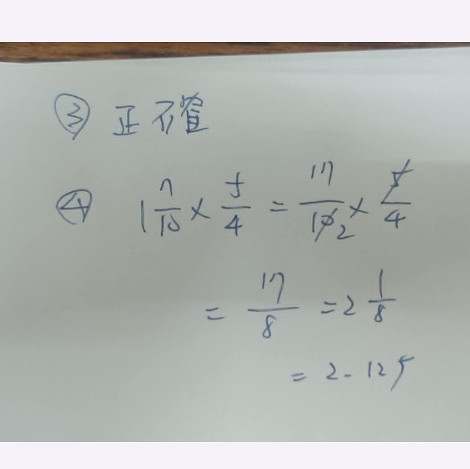 ③ 正確
④ 1 7/10 × 5/4 = 17/10 2 × 5/4
= 17/8 = 2 1/8
= 2.125